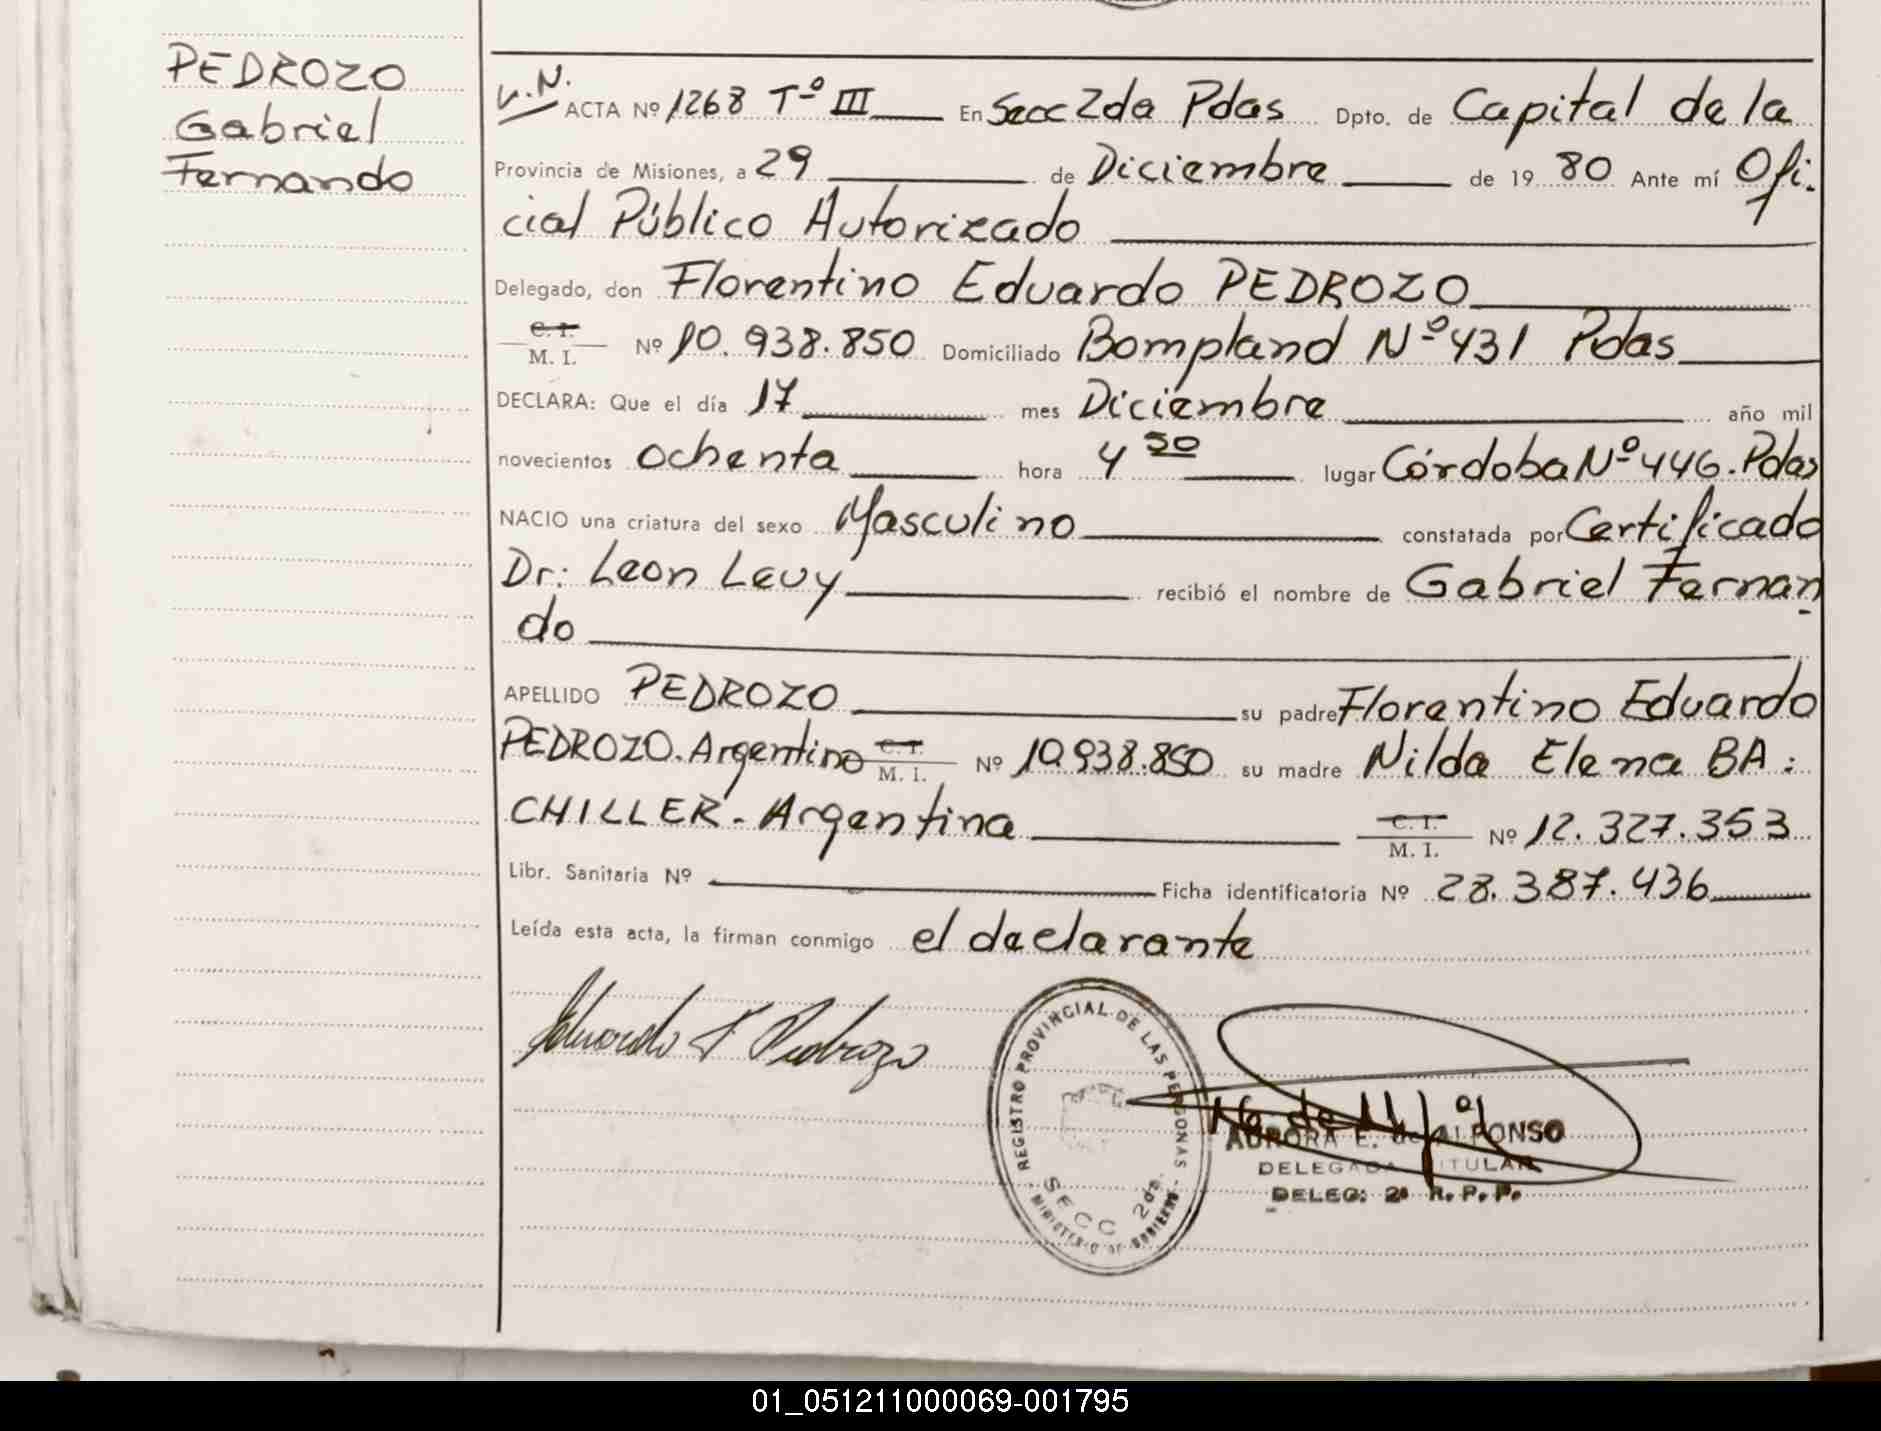 PEDROZO
Gabriel
Fernando
ACTA Nº 1268 Tº III En Secc 2da Pdas Dpto. de Capital de la
Provincia de Misiones, a 29 de Diciembre de 19 80 Ante mí Ofi-
cial Público Autorizado
Delegado, don Florentino Eduardo PEDROZO
C. I.
M. I. Nº 10.938.850 Domiciliado Bompland Nº 431 Pdas
DECLARA: Que el día 17 mes Diciembre año mil
novecientos ochenta hora 4 30 lugar Córdoba Nº 446. Pdas
NACIO una criatura del sexo Masculino constatada por Certificado
Dr: Leon Levy recibió el nombre de Gabriel Fernan
do
APELLIDO PEDROZO su padre Florentino Eduardo
PEDROZO. Argentino C. I. M. I. Nº 10.938.850 su madre Nilda Elena BA:
CHILLER - Argentina C. I. M. I. Nº 12.327.353
Libr. Sanitaria Nº Ficha identificatoria Nº 28.387.436
Leída esta acta, la firman conmigo el declarante
Eduardo F Pedrozo
REGISTRO PROVINCIAL DE LAS PERSONAS - MINISTERIO DE GOBIERNO -
SECC 2da.
AURORA E. de ALFONSO
DELEGADA TITULAR
DELEG: 2ª R. P. P.
01_051211000069-001795